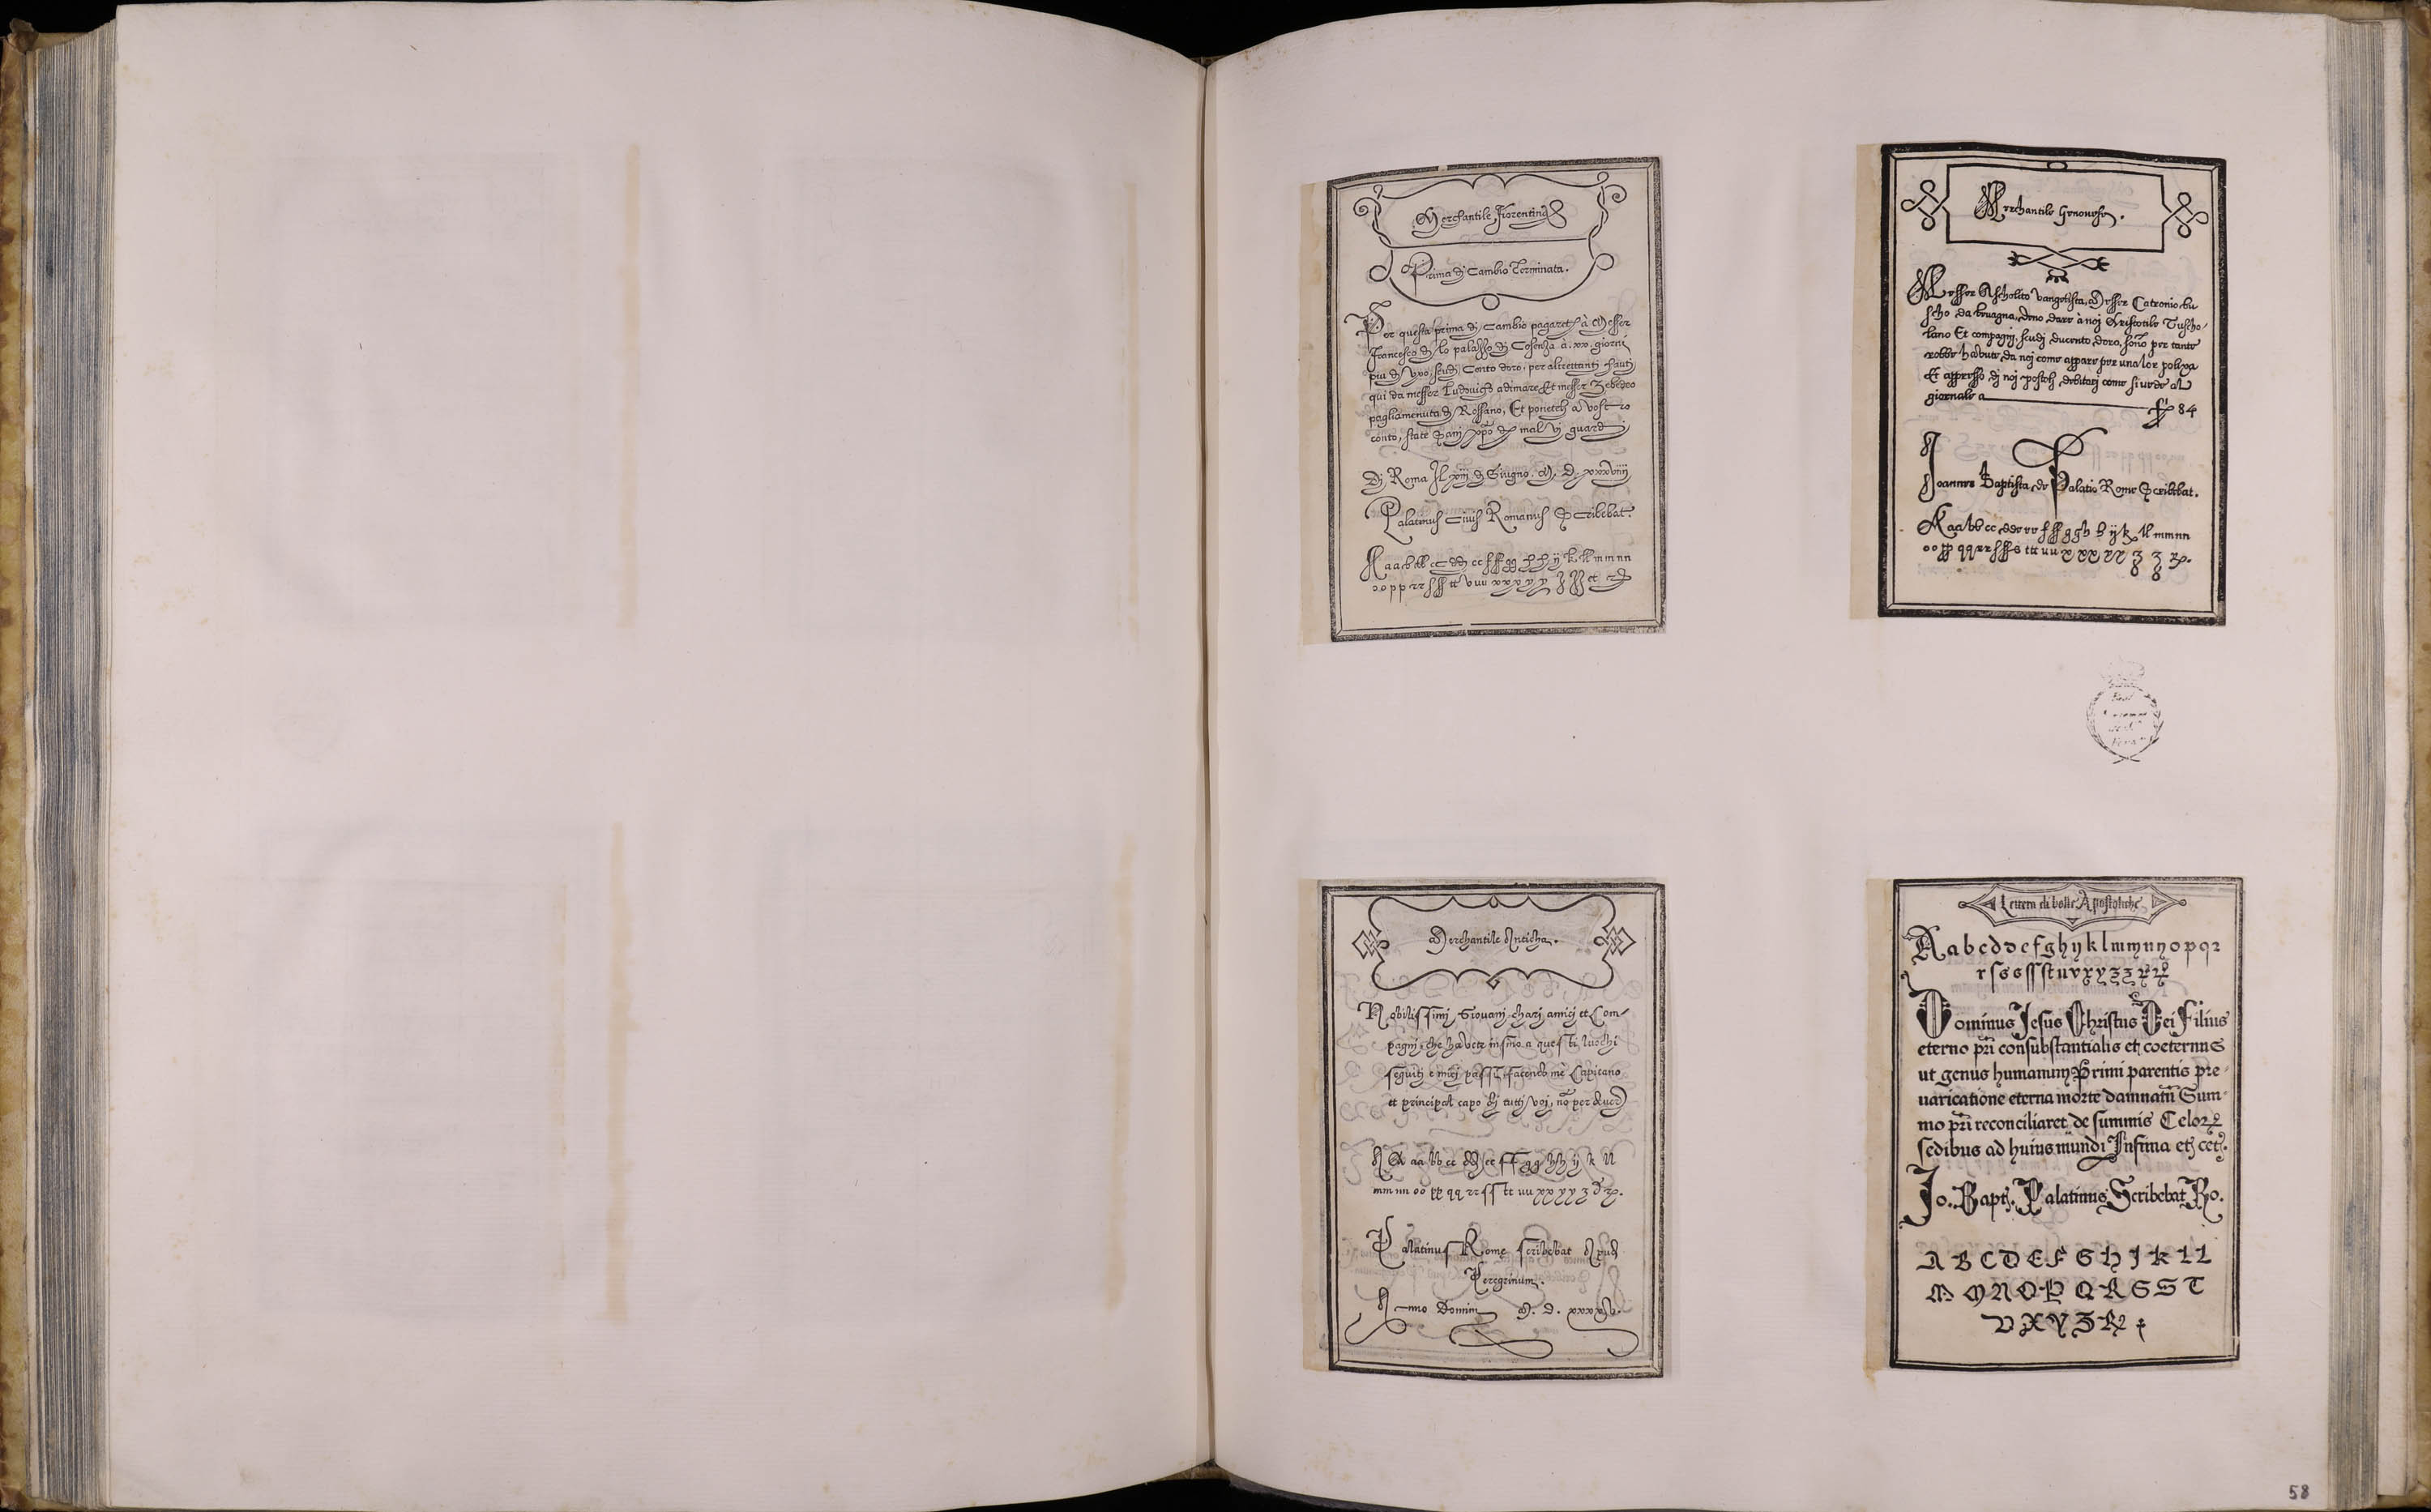 Merchantile Fiorentina
Prima di Cambio Terminata.
Per questa prima di Cambio pagarete à Messer
Francesco di lo palazzo di Cosenza à .xx. giorni
piu di Vso, scudi Cento doro, per altrettanti hauti
qui da messer Luduico adimare Et messer Zebedeo
pagliamenuta di Rossano, Et ponetelj a vostro
conto, state sani xpo di mal vi guardi
Di Roma Il xiij di Giugno. M. D. xxxviiij
Palatinus Ciuis Romanus Scribebat.
A aa bbb cc dd ee fff gg hh ij k lll mm nn
oo pp rr sss tt v uu xx x y y z zz et
Merchantile Genouese.
Messer Ascholito Vangelista, Messer Catronio bu
scho da beuagna, deno dare à noj Aristotile Tuscho-
lano Et compagnj, scudj ducento doro, sono per tante
robbe habute da noj come appare per una lor polixa
Et appresso di noj postoli debitorj come si uede al
giornale a 84
Ioannes Baptista de Palatio Rome Scribebat.
A aa bb cc dd ee ff ff gg h h ij k ll mm nn
oo pp qq rr ss s tt uu x xx yy z z
Merchantile Anticha.
Nobilissimj Giouanj charj amicj et Com-
pagnj, che hauete insino a questi luochi
seguitj e miej passi, facendo me Capitano
et principal capo dj tuttj voj, nò per douer
A A aa bb cc dd ee ff gg hh ij k ll
mm nn oo pp qq rr ss tt uu xx yy z
Palatinus Rome scribebat Apud
Peregrinum.
Anno Domini M. D. xxxx
Lettera di bolle Apostoliche
A a b c d d e f g h y k l m m n n o p q r
r s s s ss st u v x y z z
Dominus Jesus Christus Dei Filius
eterno pri consubstantialis et coeternus
ut genus humanum Primi parentis pre-
uaricatione eterna morte damnatu Sum-
mo pri reconciliaret de summis Celor
sedibus ad huius mundi Infima et cet.
Jo. Bapt. Palatinus Scribebat Ro.
A B C D E F G H J K L L
M M N O P Q R S S T
V X Y Z
58